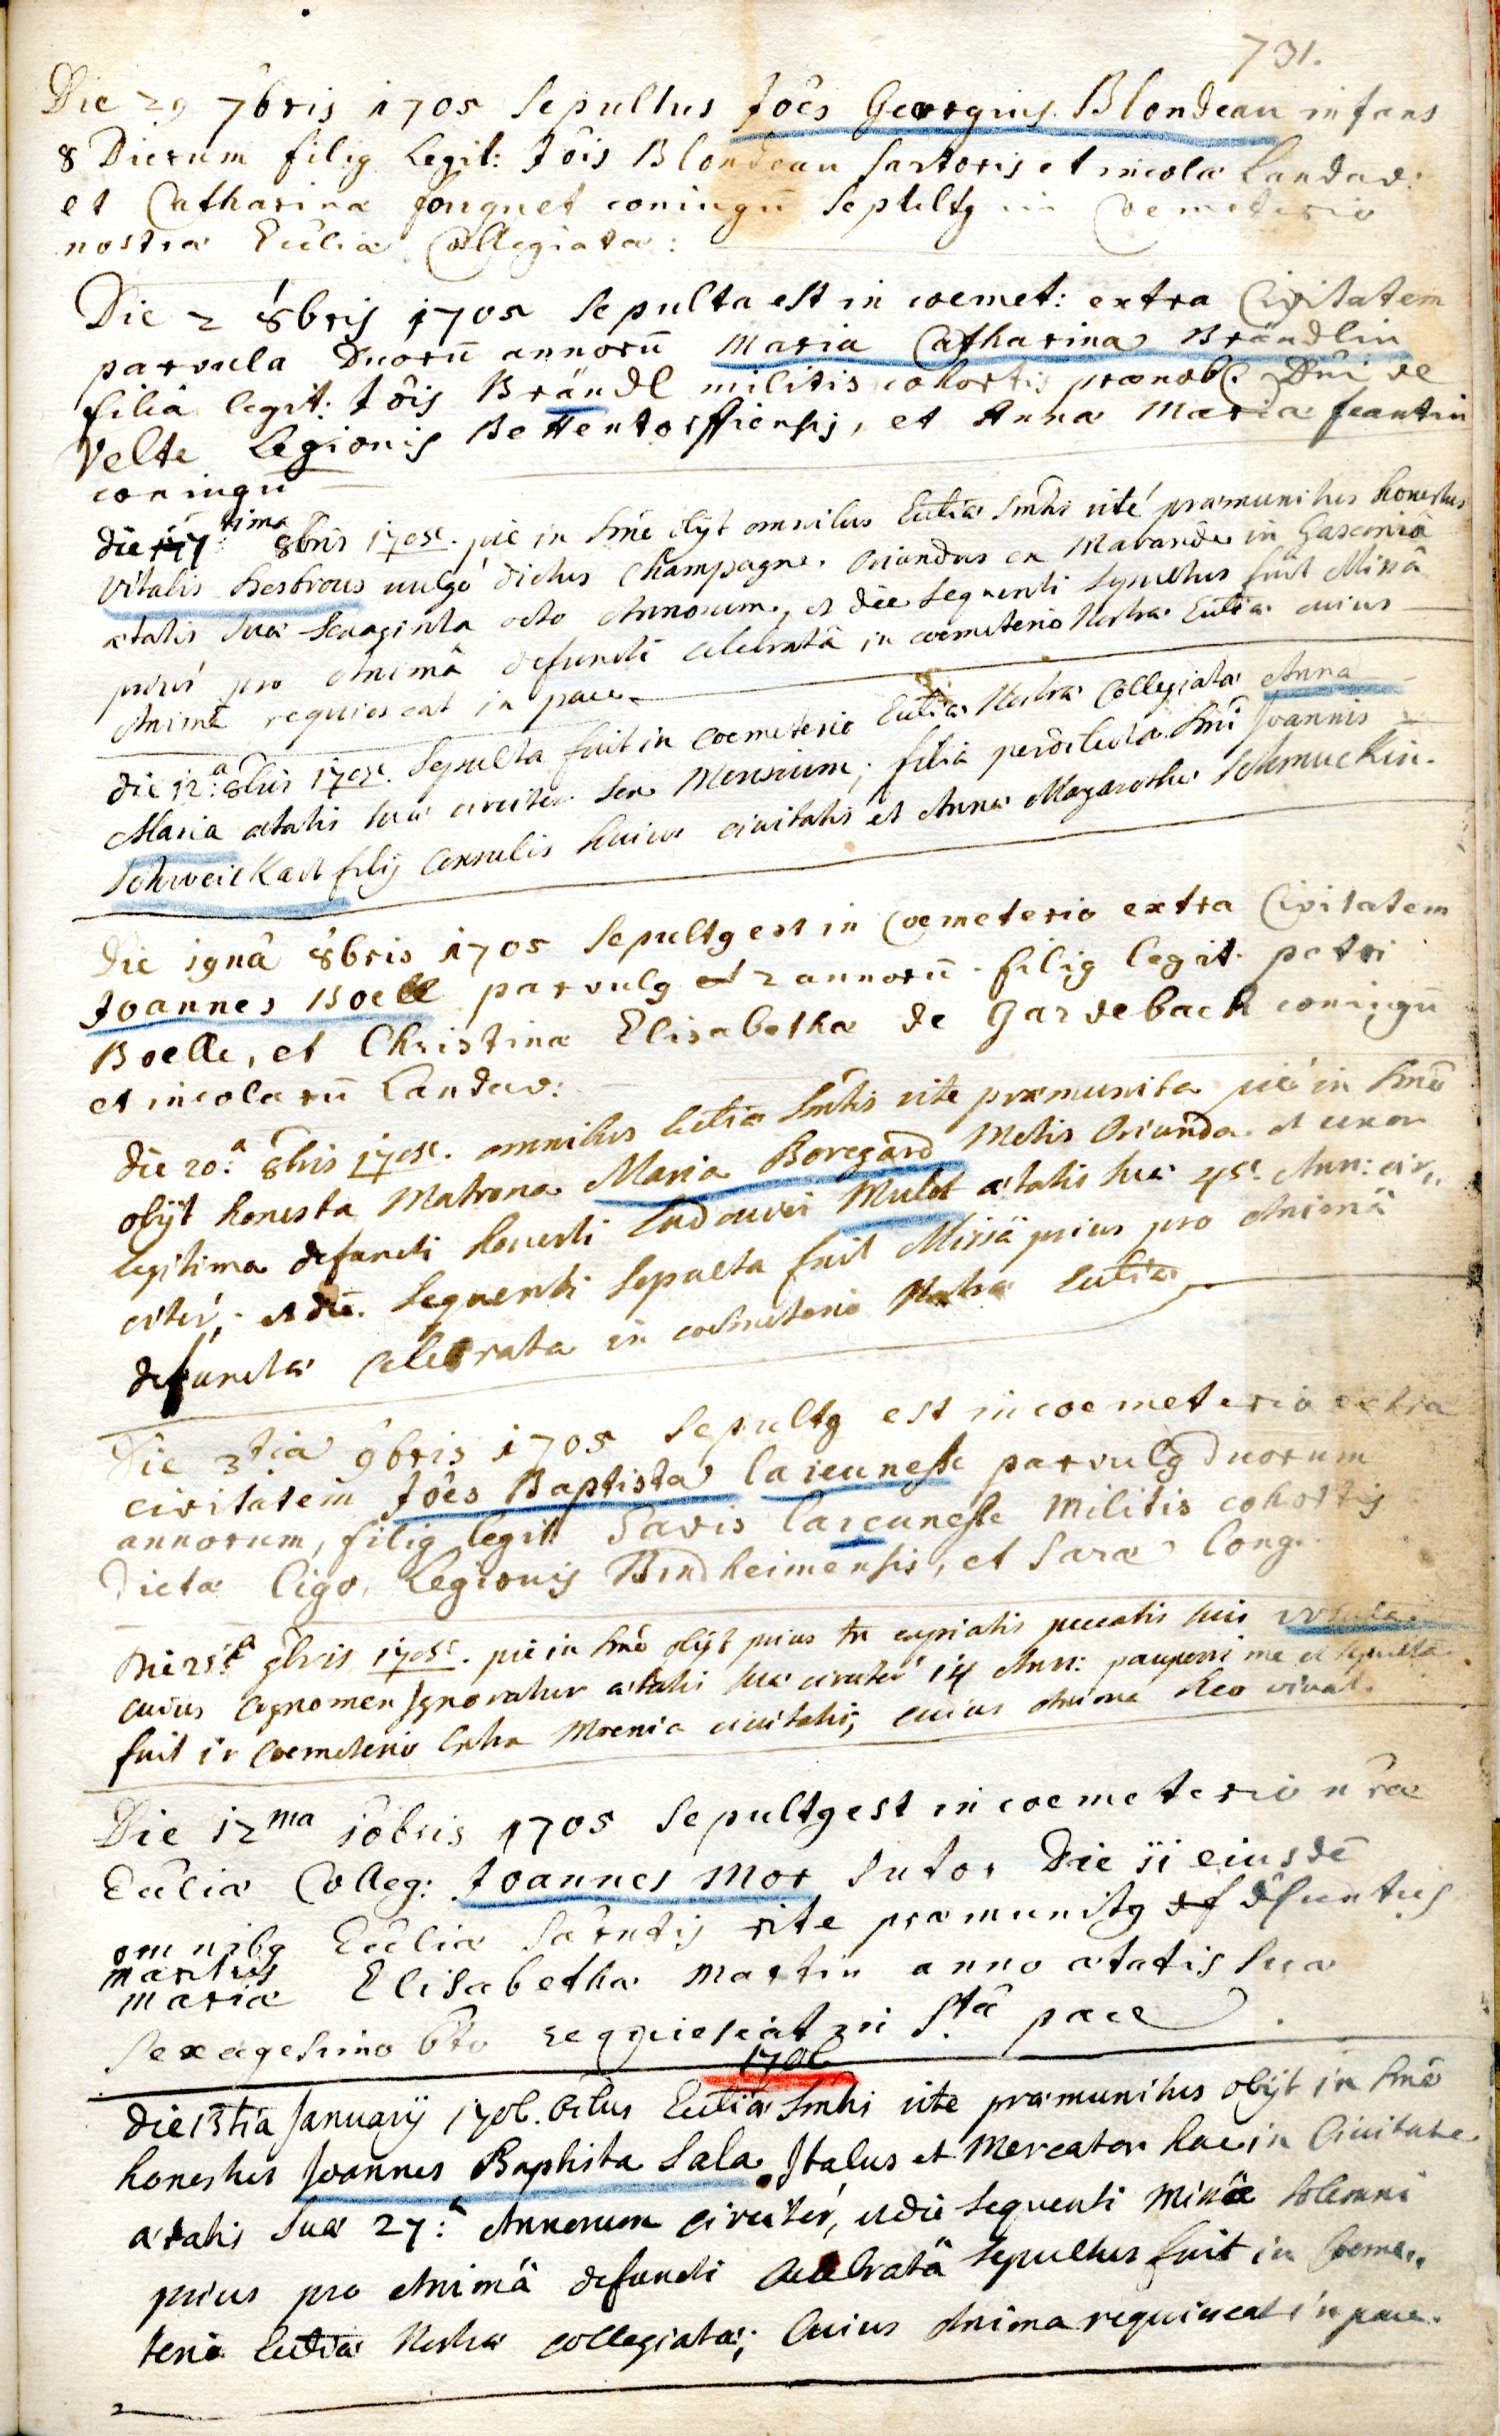 731.
Die 29 7bris 1705 Sepultus Joês Georgius Blondeau infans
8 Dierum filiq legit: Jôis Blondeau Sartoris et incolæ Landav:
et Catharinæ fouquet coniugū Sepultq in Coemeterio
nostræ Ecclîæ Collegiatæ:
Die 2 8bris 1705 Sepulta est in coemet: extra Civitatem
parvula Duorū annorū Maria Catharina Brändlin
filia legit: Jôis Brändl militis cohortis prænob. Dñi de
Velte Legionis Bettendorffiensis, et Anna Maria
coniugū
die 8bris 1705. pie in Dnõ obijt omnibus Eccliæ Smtis rité præmunitus honestus
Vitalis Desbrous vulgó dictus Champagne. Oriundus ex Marande in Gasconiâ
ætatis suæ sexaginta octo Annorum, et die sequenti sepultus fuit Missâ
prius pro Animâ defuncti celebratâ in coemeterio Nostræ Eccliæ cuius
Anima requiescat in pace
die 12.ª 8bris 1705. Sepulta fuit in coemeterio Eccliæ Nostræ Collegiatæ Anna
Maria ætatis suæ circiter sex Mensium; filia perdilecta Dni Joannis
Schweickart filij Consulis huius civitatis et Annæ Margarethæ Schmuckin.
Die 19nâ 8bris 1705 Sepultq est in Coemeterio extra Civitatem
Joannes Boell parvulq et 2 annorū. filiq legit. petri
Boelle, et Christinæ Elisabetha de Gardeback coniugū
et incolarū Landav:
die 20.ª 8bris 1705. omnibus Eccliæ Smtis rite præmunita pié in Dnô
obijt honesta Matrona Maria Boregard Metis Oriunda et uxor
legitima defuncti honesti Ludovici Mulot ætatis suæ 45. Ann: cir,,
citer, et die sequenti Sepulta fuit Missâ prius pro Animâ
defunctæ celebrata in coemeterio Nostræ Eccliæ
Die 3tia 9bris 1705 Sepultq est in coemeterio extra
civitatem Jôes Baptista lajeunesse parvulq Duorum
annorum, filiq legit: lajeunesse Militis cohortis
Dictæ Ligo, Legionis Bindheimensis, et Sara Long.
Die 25.ª 9bris 1705. pie in Dnô obijt prius expiatis peccatis suis Ursula
cuius Cognomen Ignoratur ætatis suæ circiter 14 Ann: pauperrime et sepulta
fuit in Coemeterio Extra Moenia civitatis, cuius Anima Deo vivat.
Die 12ma 10bris 1705 Sepultq est in coemeterio nræ
Ecclîæ Colleg: Joannes Mor Sutor Die 11 eiusdē
omnibq Eccliæ Sacmtis rite præmunitq df dfunctus
maritus
Maria Elisabetha Martin anno ætatis suæ
Sexagesimo 8to requiescat in Stâ pace
1706
die 13tia Januarij 1706. Oibus Eccliæ Smtis rite præmunitus obijt in Dnô
honestus Joannes Baptista Sala Italus et Mercator hac in Civitate
ætatis suæ 27.ª Annorum circiter, et die sequenti Missâ solemni
prius pro Animâ defuncti celebratâ Sepultus fuit in Coeme,,
terio Eccliæ Nostræ collegiatæ; Cuius Anima requiescat in pace.